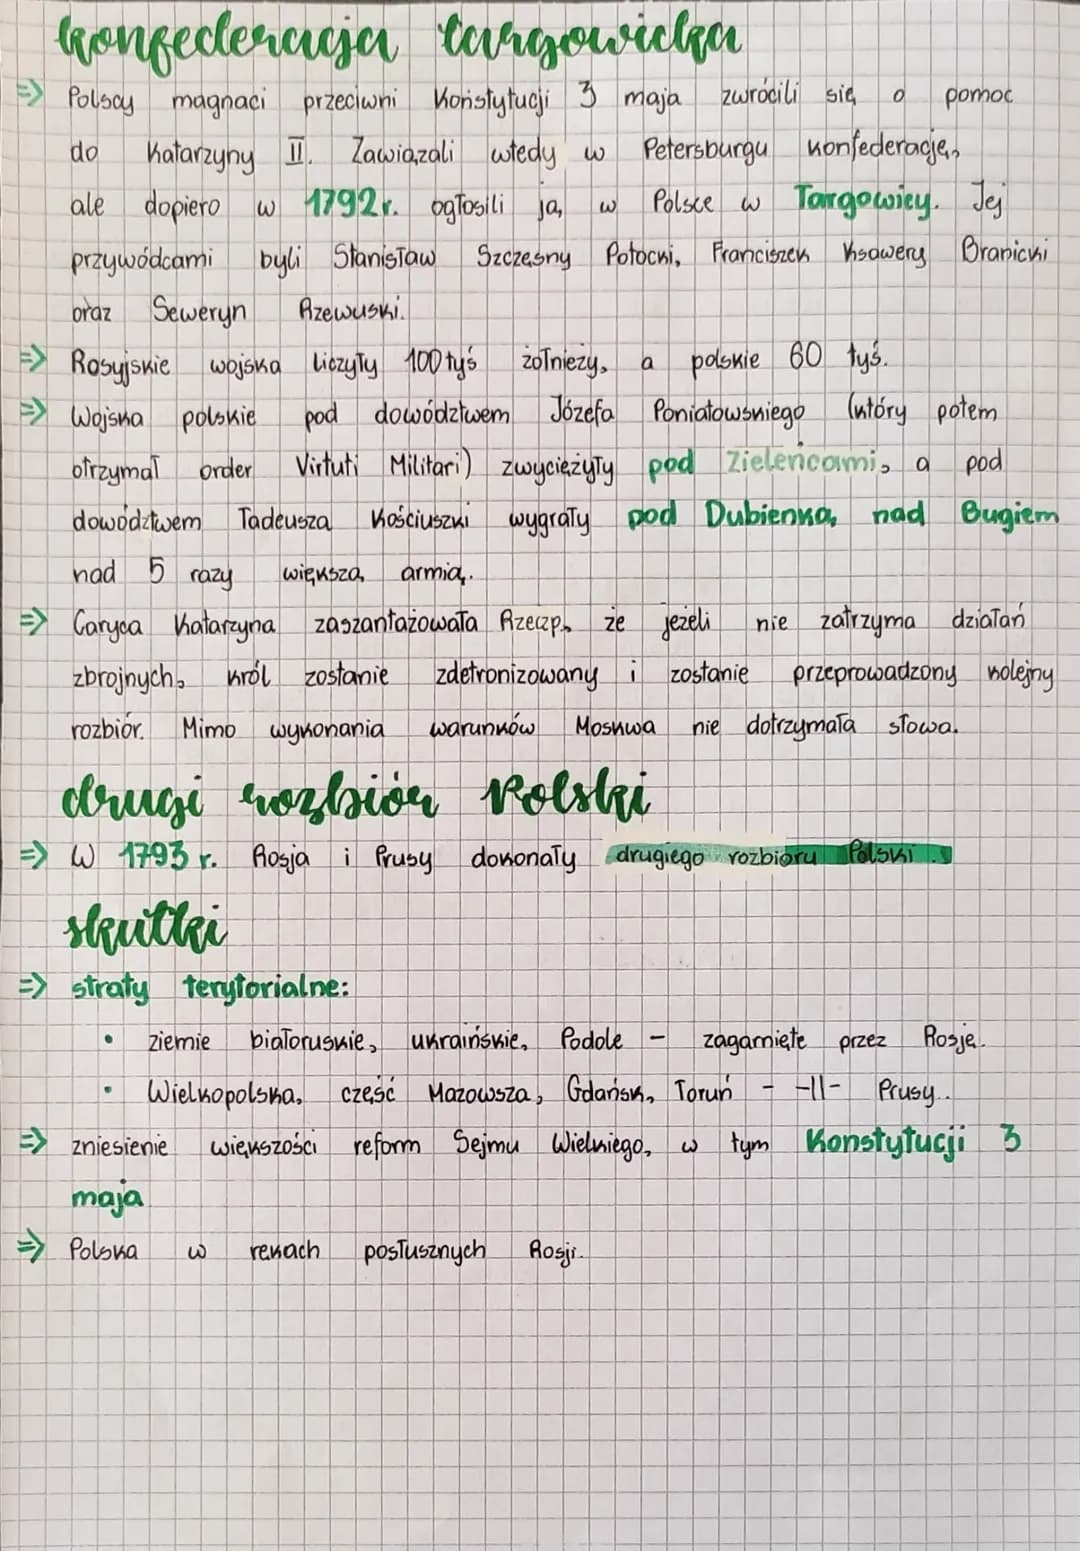 konfederacja targowicka
=> Polscy magnaci przeciwni Konstytucji 3 maja zwrócili się o pomoc
do Katarzyny II. Zawiązali wtedy w Petersburgu konfederację,
ale dopiero w 1792r. ogłosili ją w Polsce w Targowicy. Jej
przywódcami byli Stanisław Szczęsny Potocki, Franciszek Ksawery Branicki
oraz Seweryn Rzewuski.
=> Rosyjskie wojska liczyły 100 tyś żołnieży, a polskie 60 tyś.
=> Wojska polskie pod dowództwem Józefa Poniatowskiego (który potem
otrzymał order Virtuti Militari) zwyciężyły pod Zieleńcami, a pod
dowództwem Tadeusza Kościuszki wygrały pod Dubienką nad Bugiem
nad 5 razy większą armią.
=> Caryca Katarzyna zaszantażowała Rzeczp, że jeżeli nie zatrzyma działań
zbrojnych, król zostanie zdetronizowany i zostanie przeprowadzony kolejny
rozbiór. Mimo wykonania warunków Moskwa nie dotrzymała słowa.
drugi rozbiór Polski
=> W 1793 r. Rosja i Prusy dokonały drugiego rozbioru Polski.
skutki
=> straty terytorialne:
• ziemie białoruskie, ukraińskie, Podole - zagarnięte przez Rosję.
• Wielkopolska, część Mazowsza, Gdańsk, Toruń - -||- Prusy.
=> zniesienie większości reform Sejmu Wielkiego, w tym Konstytucji 3
maja
=> Polska w rękach posłusznych Rosji.